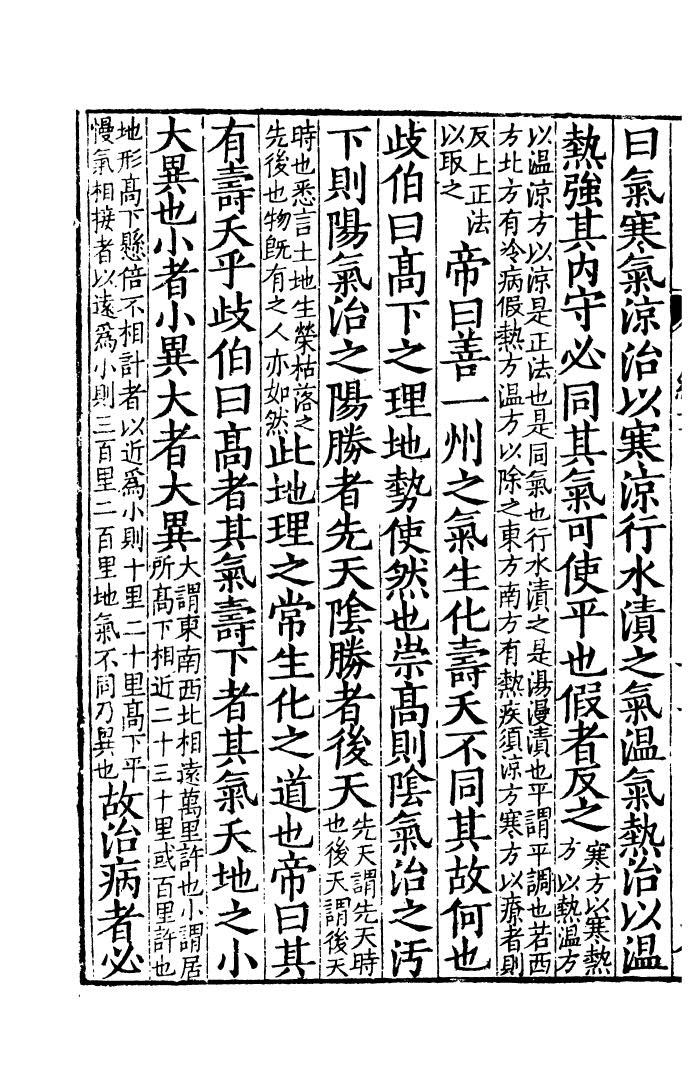 曰氣寒氣涼治以寒涼行水漬之氣溫氣熱治以溫
熱強其內守必同其氣可使平也假者反之寒方以寒熱
方以熱溫方
以溫涼方以涼是正法也是同氣也行水漬之是湯漫漬也平謂平調也若西
方北方有冷病假熱方溫方以除之東方南方有熱疾須涼方寒方以療者則
反上正法
以取之
帝曰善一州之氣生化壽夭不同其故何也
歧伯曰高下之理地勢使然也崇高則陰氣治之汚
下則陽氣治之陽勝者先天陰勝者後天先天謂先天時
也後天謂後天
時也悉言土地生榮枯落之
先後也物旣有之人亦如然
此地理之常生化之道也帝曰其
有壽夭乎歧伯曰高者其氣壽下者其氣夭地之小
大異也小者小異大者大異大謂東南西北相遠萬里許也小謂居
所高下相近二十三十里或百里許也
地形高下懸倍不相計者以近爲小則十里二十里高下平
慢氣相接者以遠爲小則三百里二百里地氣不同乃異也
故治病者必